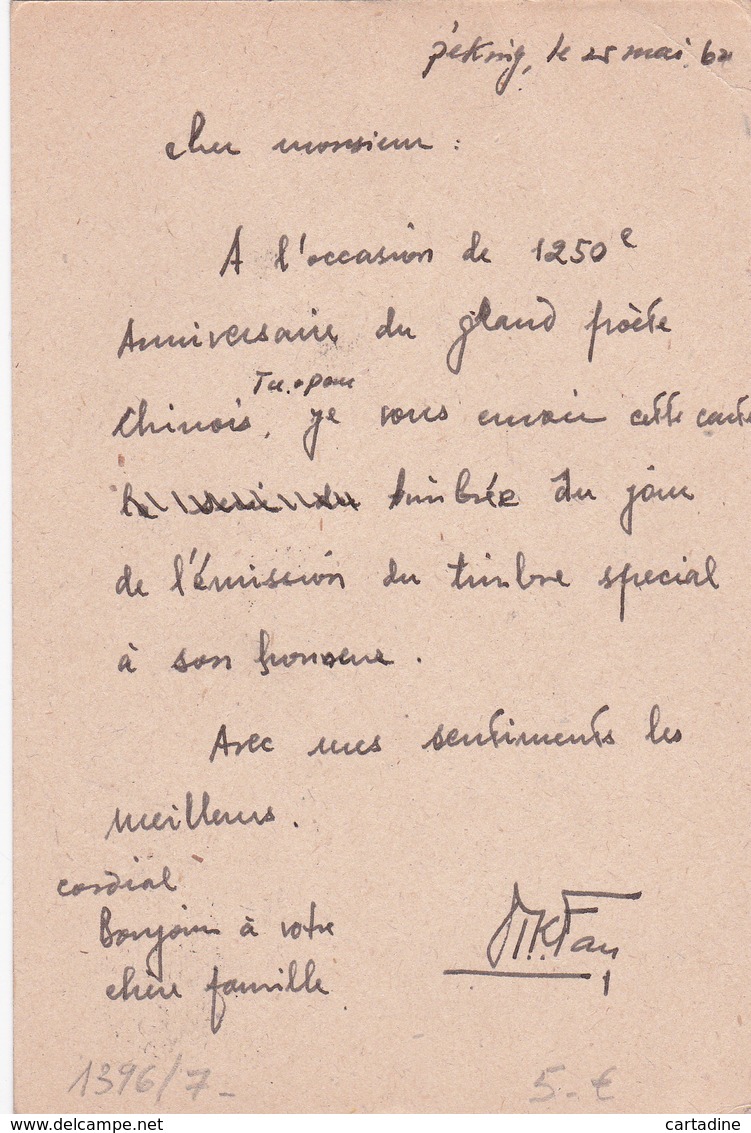 Péking, le 25 mai 62
cher monsieur :
A l'occasion de 1250e
Anniversaire du grand poète
Tu
chinois, je vous envoie cette carte
timbrée du jour
de l'émission du timbre special
à son honneur.
Avec mes sentiments les
meilleurs.
cordial
Bonjour à votre
chère famille
Fan
1396/7-
5.-€
www.delcampe.net
cartadine